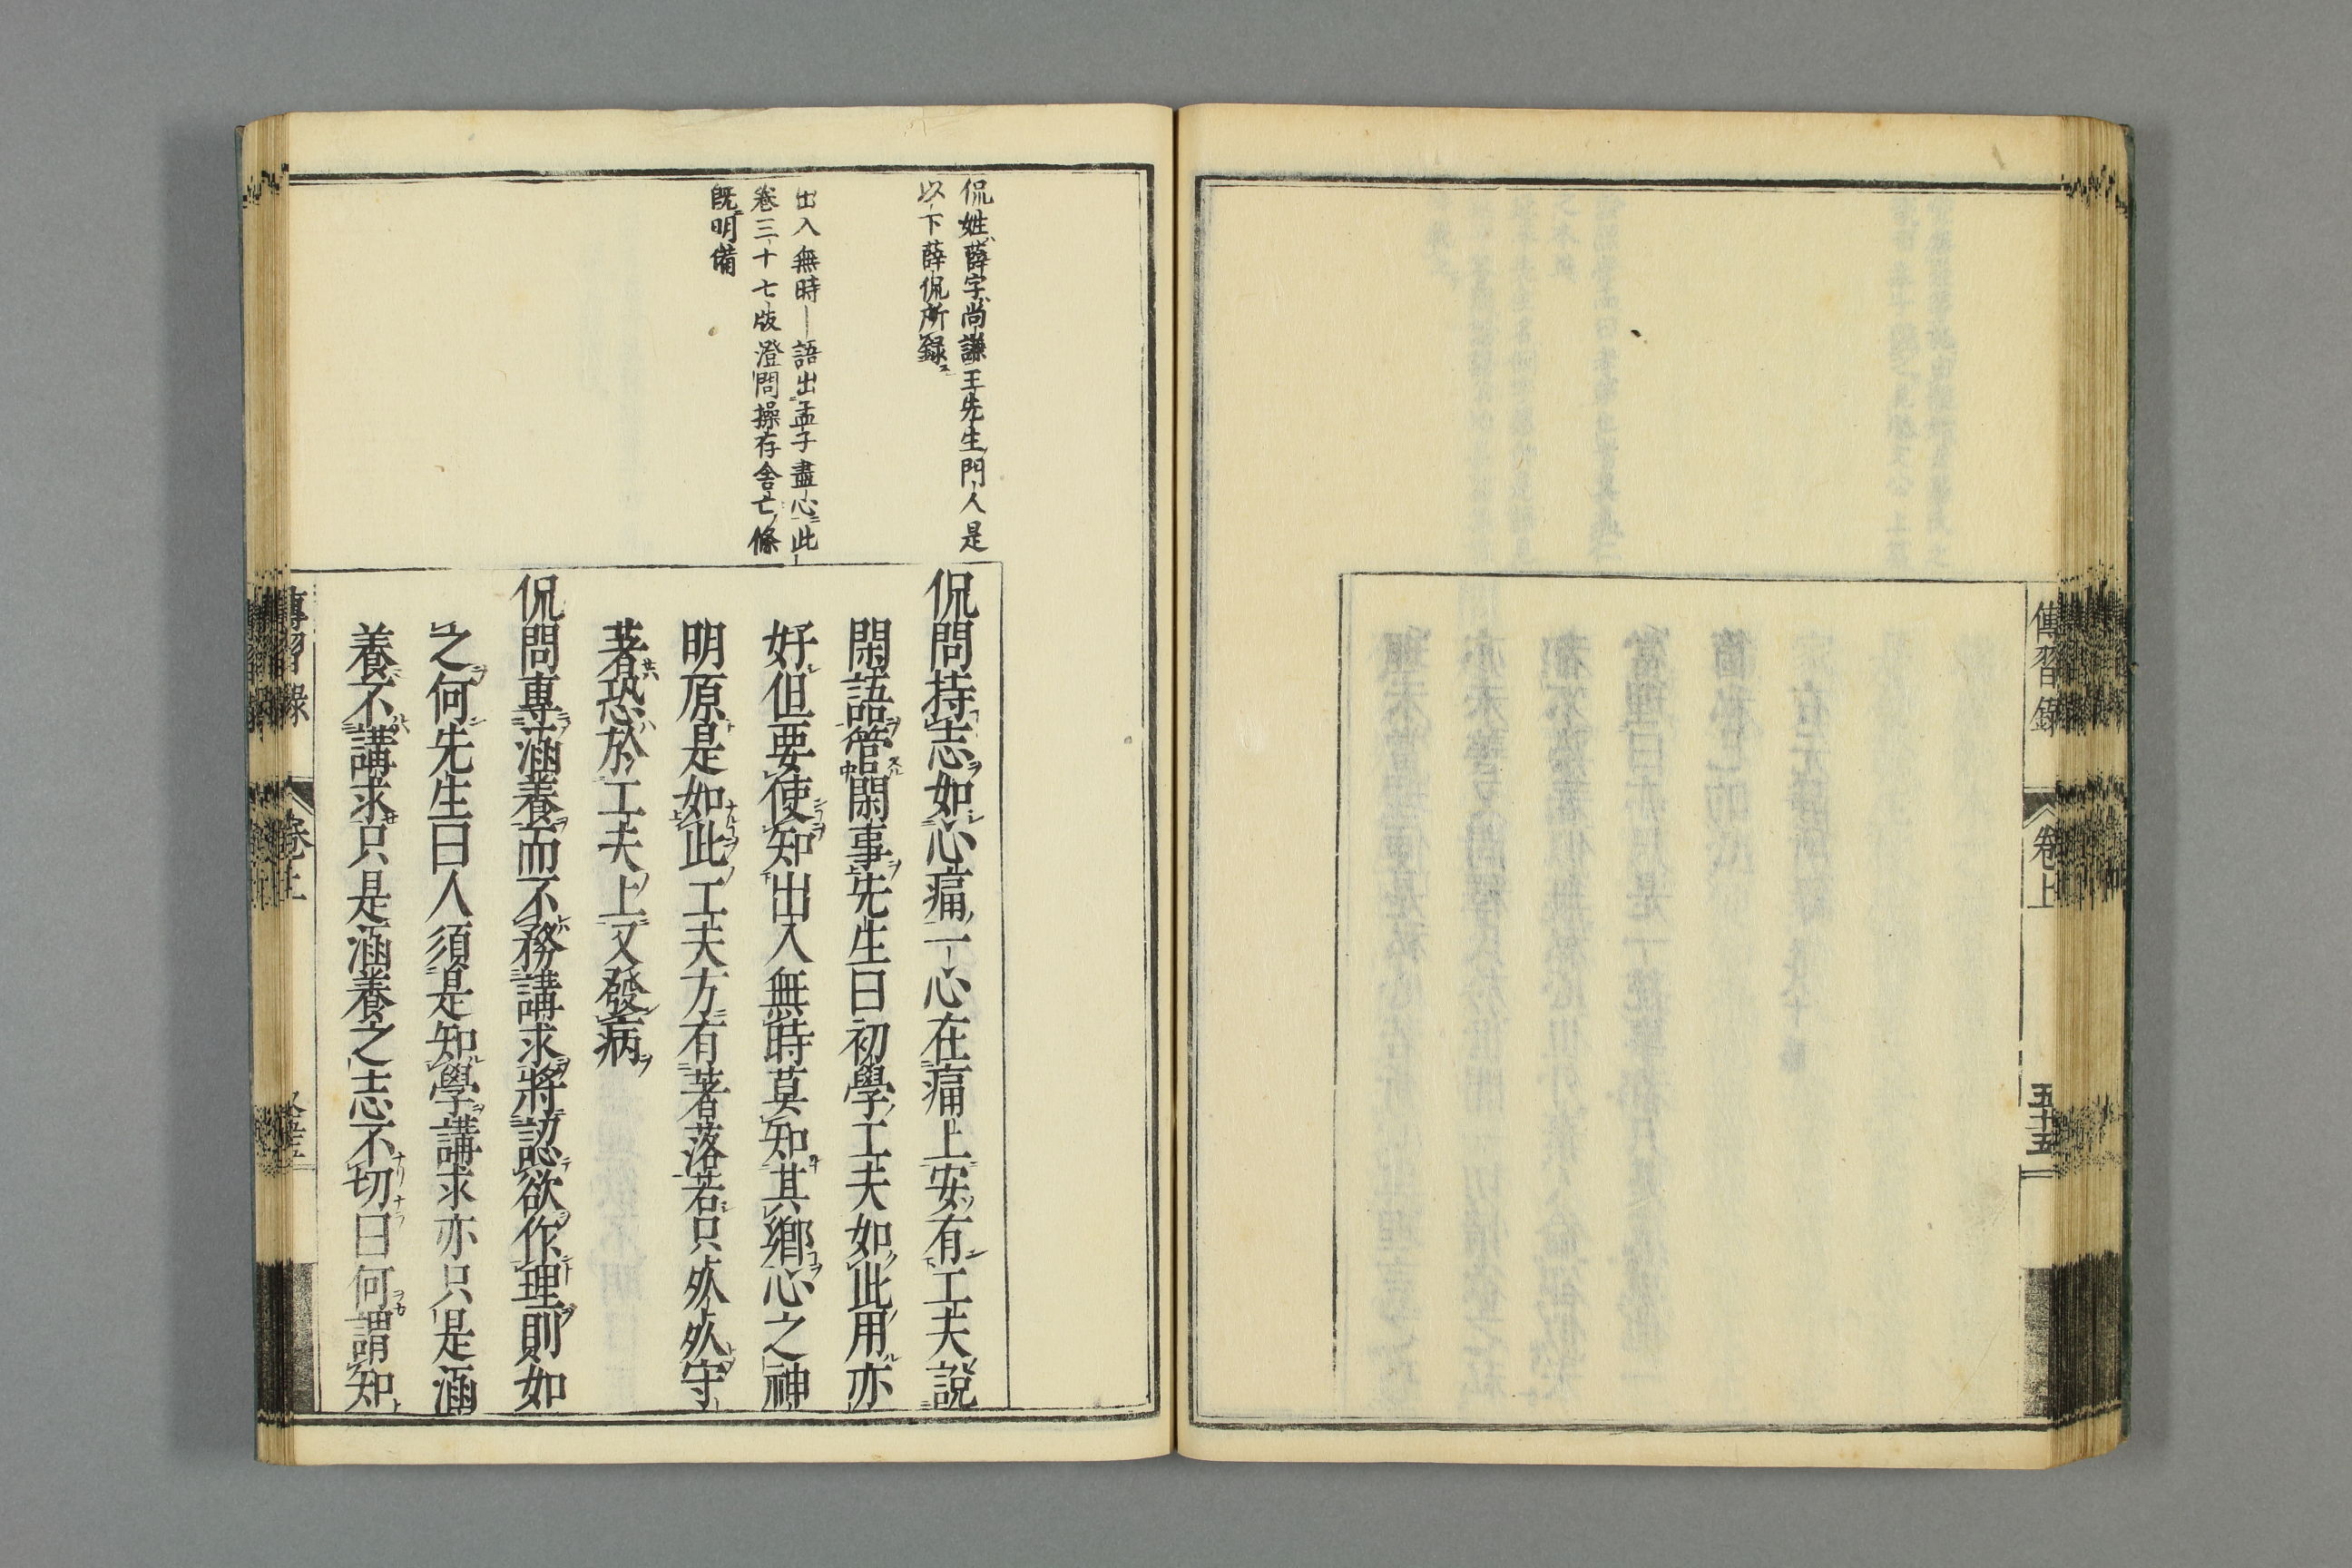 傳習錄
卷上
五十五
侃姓薛字尚謙王先生門人是
以下薛侃所錄
出入無時―語出孟子盡心此
卷三十七版澄問操存舍亡條
既明備
侃問持志如心痛一心在痛上安有工夫說
閑語管閑事先生曰初學工夫如此用亦
好但要使知出入無時莫知其鄉心之神
明原是如此工夫方有著落若只死死守
著恐於工夫上又發病
侃問專涵養而不務講求將認欲作理則如
之何先生曰人須是知學講求亦只是涵
養不講求只是涵養之志不切曰何謂知
傳習錄
卷上